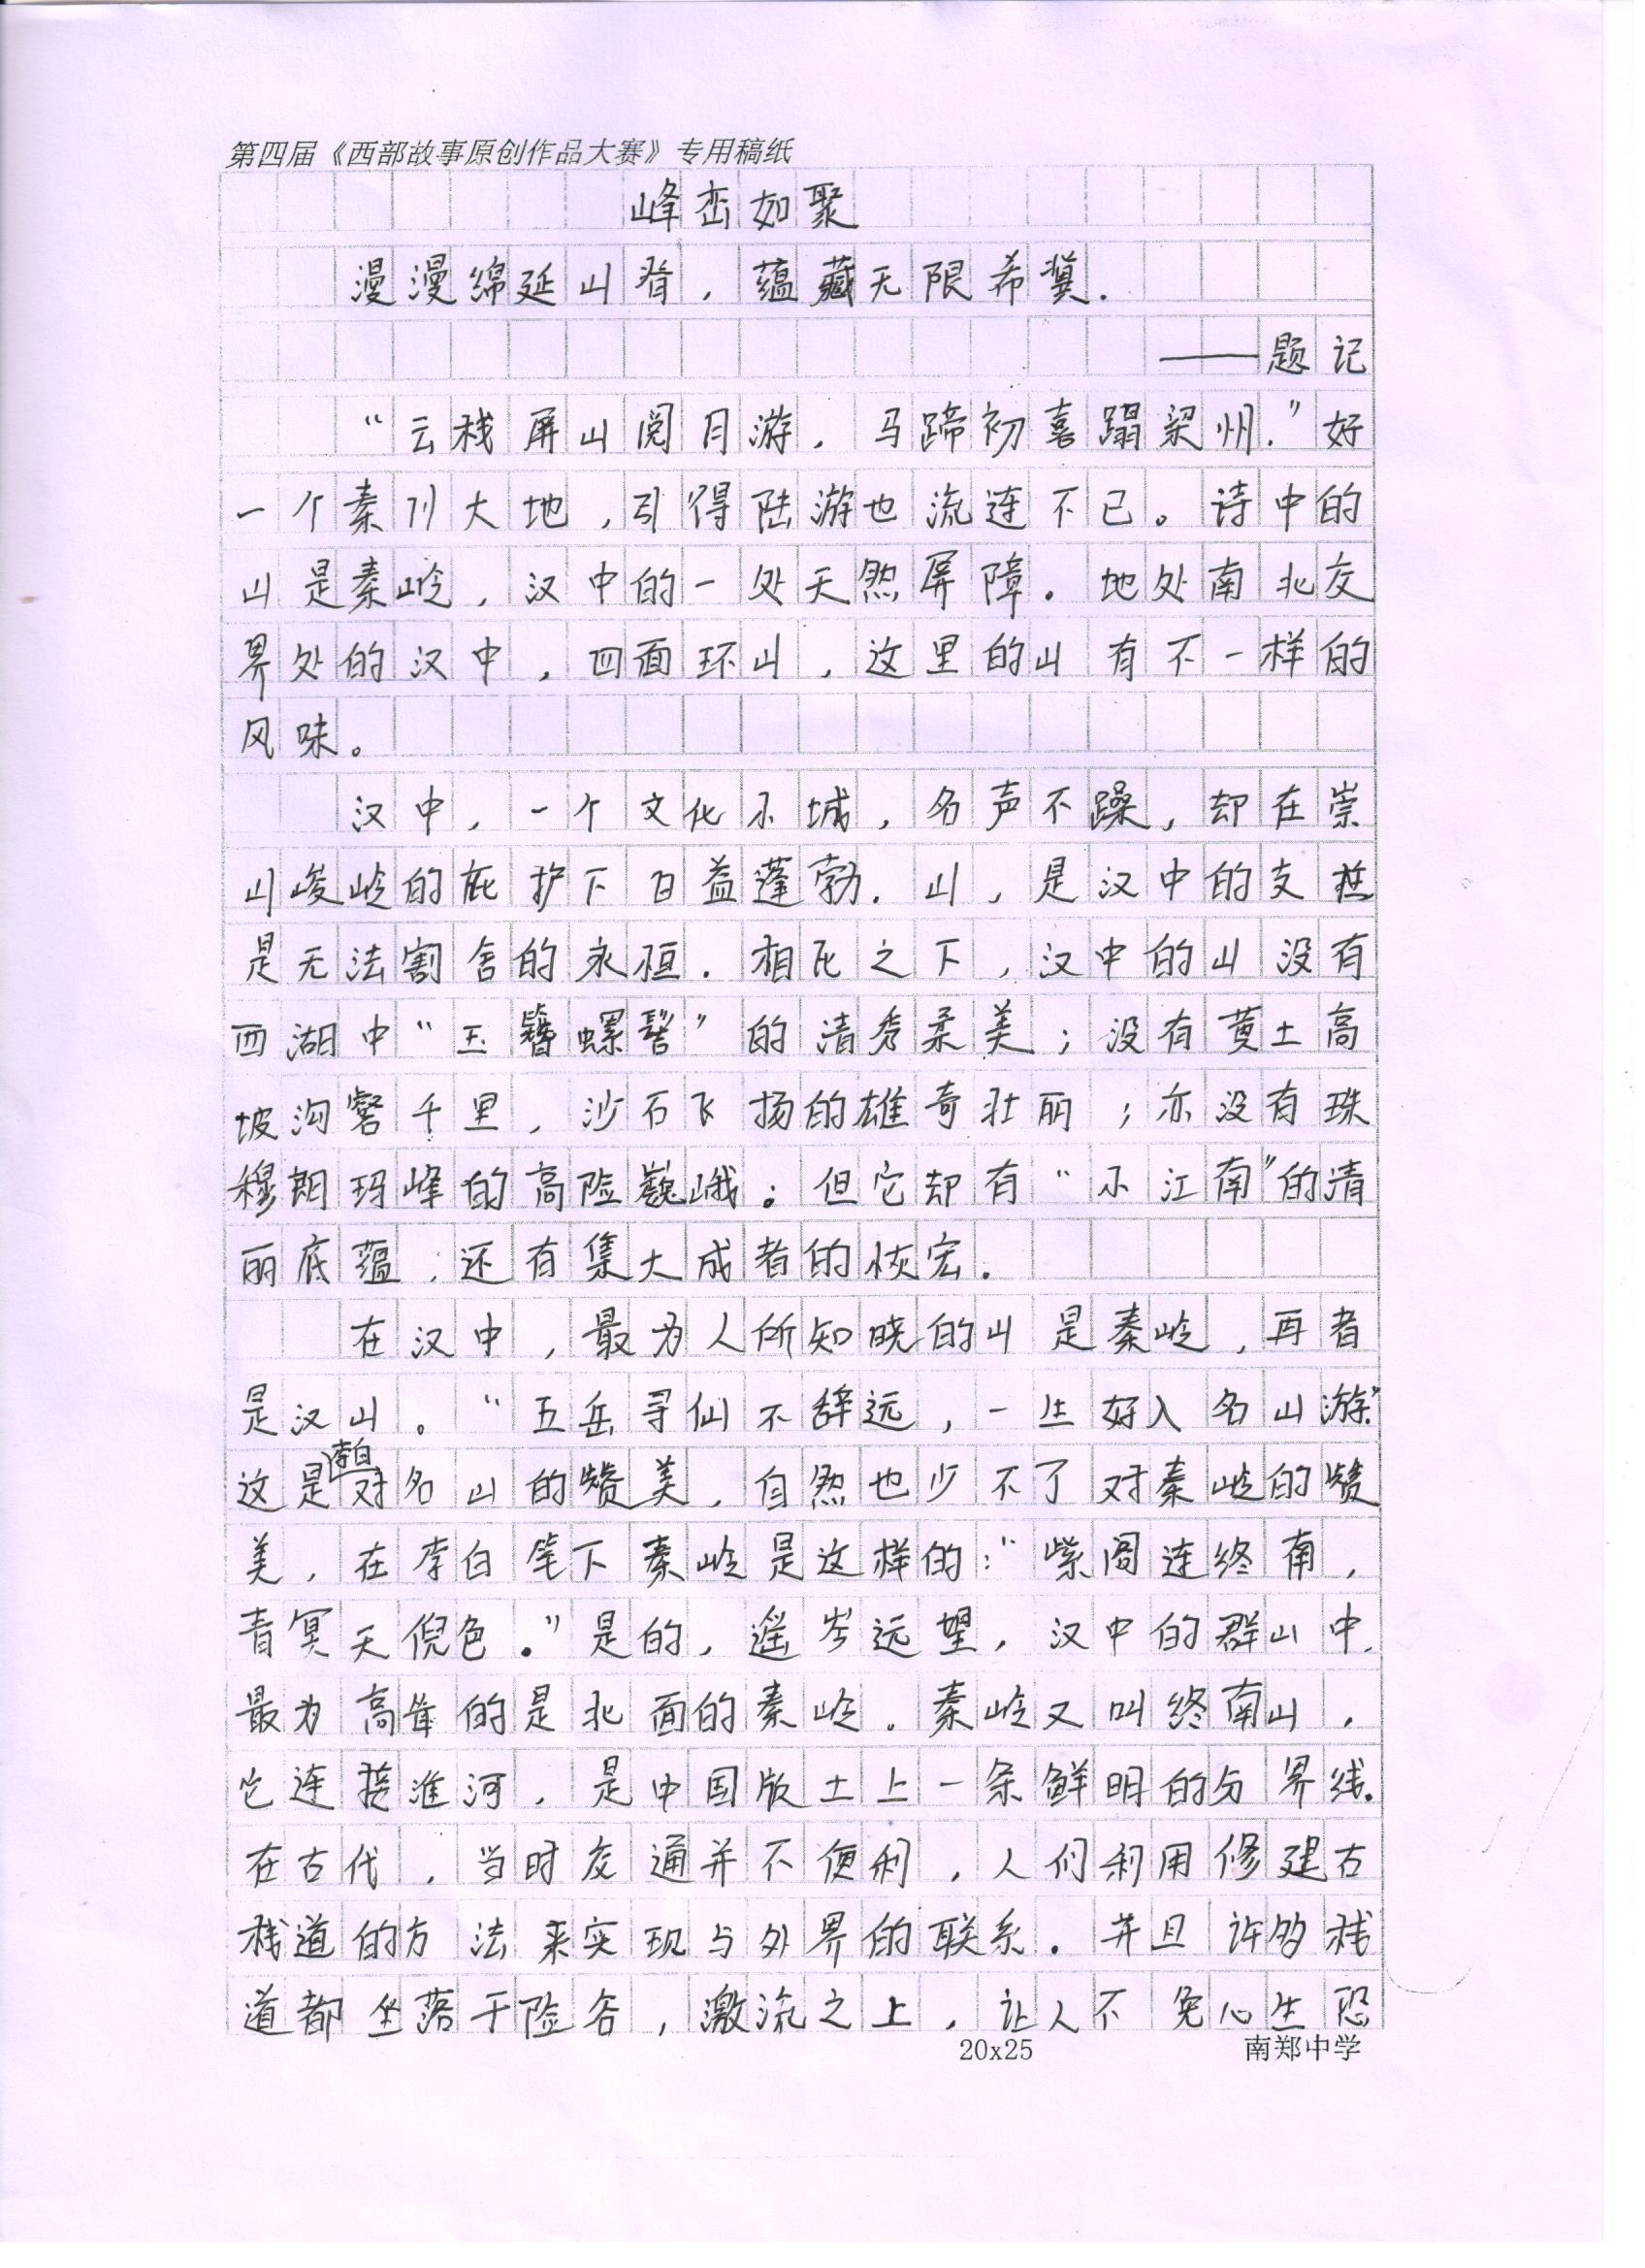 第四届《西部故事原创作品大赛》专用稿纸
峰峦如聚
漫漫绵延山脊，蕴藏无限希冀.
——题记
“云栈屏山阅月游，马蹄初喜蹋梁州.”好
一个秦川大地，引得陆游也流连不已。诗中的
山是秦岭，汉中的一处天然屏障.地处南北交
界处的汉中，四面环山，这里的山有不一样的
风味。
汉中，一个文化小城，名声不躁，却在崇
山峻岭的庇护下日益蓬勃.山，是汉中的支柱
是无法割舍的永恒.相比之下，汉中的山没有
西湖中“玉簪螺髻”的清秀柔美；没有黄土高
坡沟壑千里，沙石飞扬的雄奇壮丽；亦没有珠
穆朗玛峰的高险巍峨。但它却有“小江南”的清
丽底蕴，还有集大成者的恢宏.
在汉中，最为人所知晓的山是秦岭，再者
是汉山。“五岳寻仙不辞远，一生好入名山游”
这是李白对名山的赞美，自然也少不了对秦岭的赞
美，在李白笔下秦岭是这样的：“紫阁连终南，
青冥天倪色。”是的，遥岑远望，汉中的群山中，
最为高耸的是北面的秦岭。秦岭又叫终南山，
它连接淮河，是中国版土上一条鲜明的分界线.
在古代，当时交通并不便利，人们利用修建古
栈道的方法来实现与外界的联系.并且许多栈
道都坐落于险谷，激流之上，让人不免心生恐
20x25 南郑中学